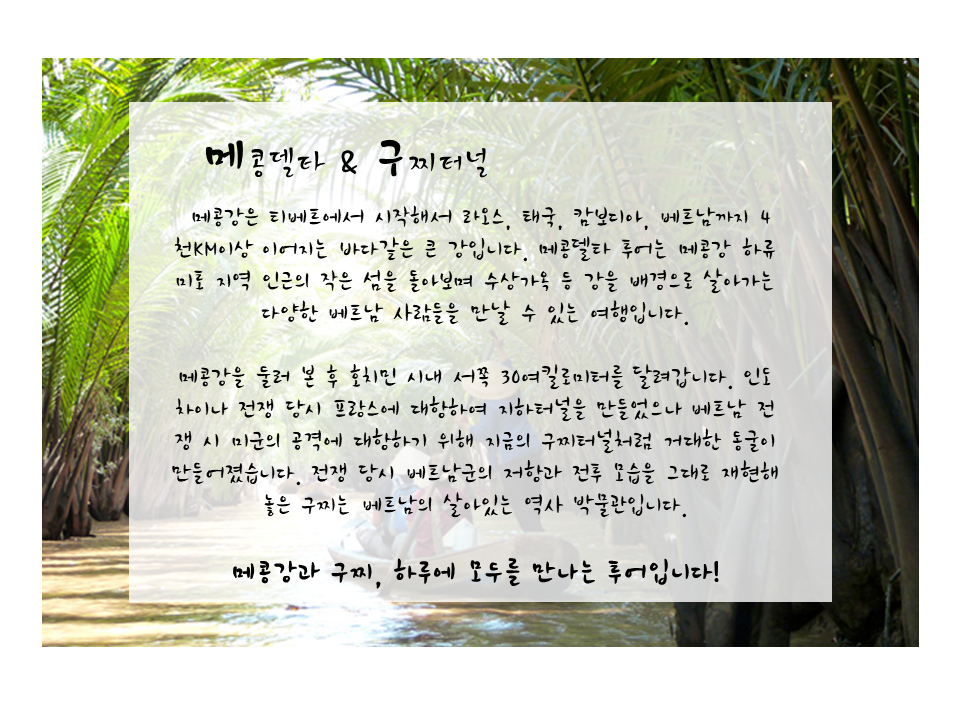 메콩델타 & 구찌터널
메콩강은 티베트에서 시작해서 라오스, 태국, 캄보디아, 베트남까지 4
천KM이상 이어지는 바다같은 큰 강입니다. 메콩델타 투어는 메콩강 하류
미토 지역 인근의 작은 섬을 돌아보며 수상가옥 등 강을 배경으로 살아가는
다양한 베트남 사람들을 만날 수 있는 여행입니다.
메콩강을 둘러 본 후 호치민 시내 서쪽 30여킬로미터를 달려갑니다. 인도
차이나 전쟁 당시 프랑스에 대항하여 지하터널을 만들었으나 베트남 전
쟁 시 미군의 공격에 대항하기 위해 지금의 구찌터널처럼 거대한 동굴이
만들어졌습니다. 전쟁 당시 베트남군의 저항과 전투 모습을 그대로 재현해
놓은 구찌는 베트남의 살아있는 역사 박물관입니다.
메콩강과 구찌, 하루에 모두를 만나는 투어입니다!